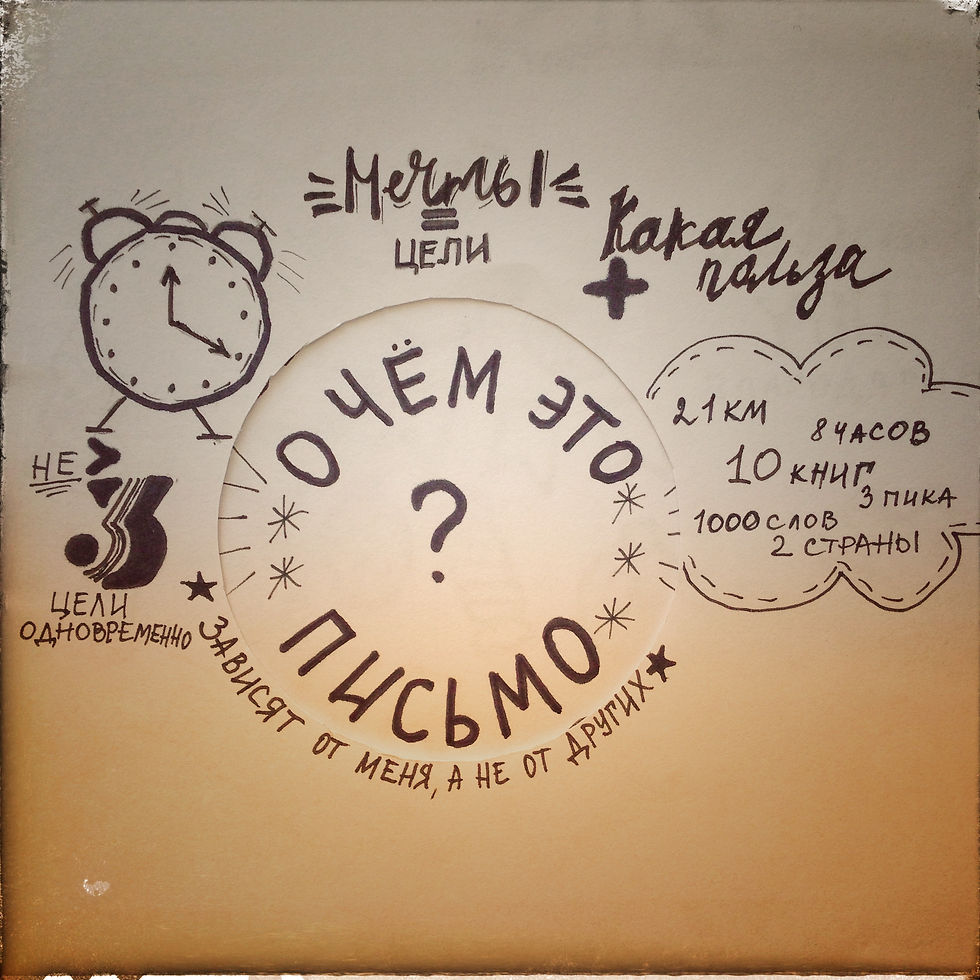 Мечты
=
ЦЕЛИ
Какая
+ польза
О ЧЁМ ЭТО
?
ПИСЬМО
21 КМ
8 ЧАСОВ
10 КНИГ
3 ПИКА
1000 СЛОВ
2 СТРАНЫ
НЕ >
3
ЦЕЛИ
ОДНОВРЕМЕННО
ЗАВИСЯТ ОТ МЕНЯ, А НЕ ОТ ДРУГИХ